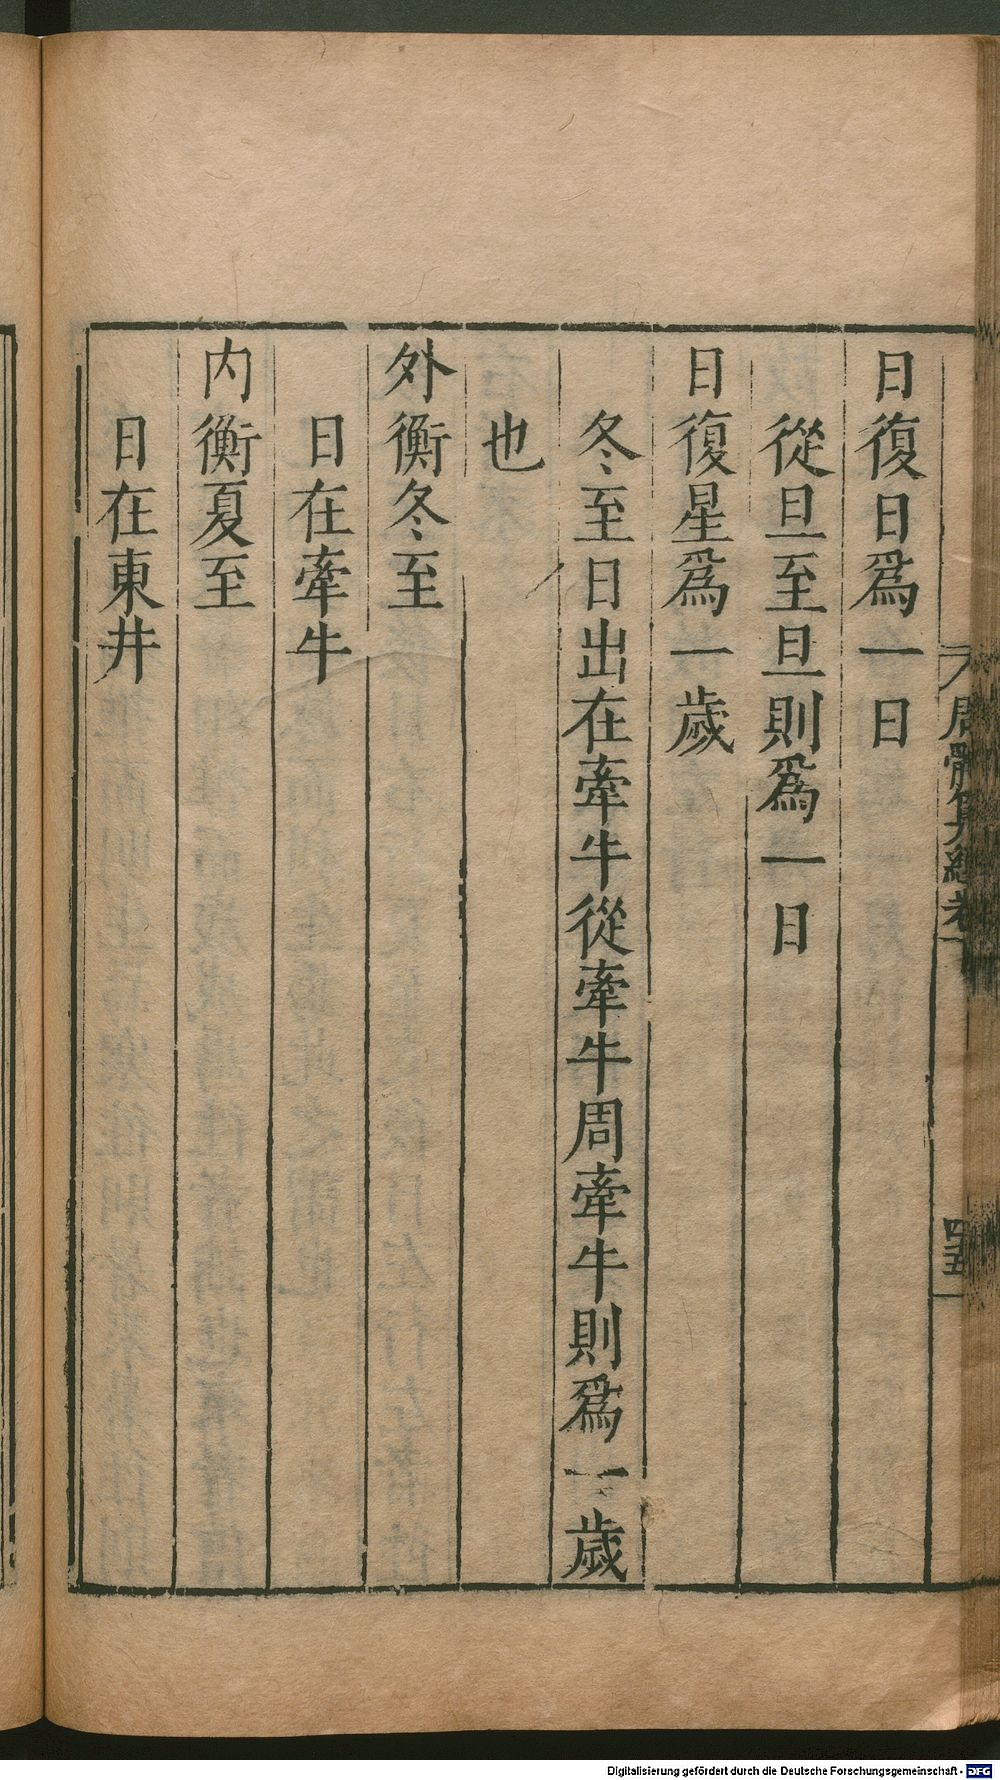 日復日爲一日
從旦至旦則爲一日
日復星爲一歲
冬至日出在牽牛從牽牛周牽牛則爲一歲
也
外衡冬至
日在牽牛
内衡夏至
日在東井
周髀算經卷下
四五
Digitalisierung gefördert durch die Deutsche Forschungsgemeinschaft - DFG